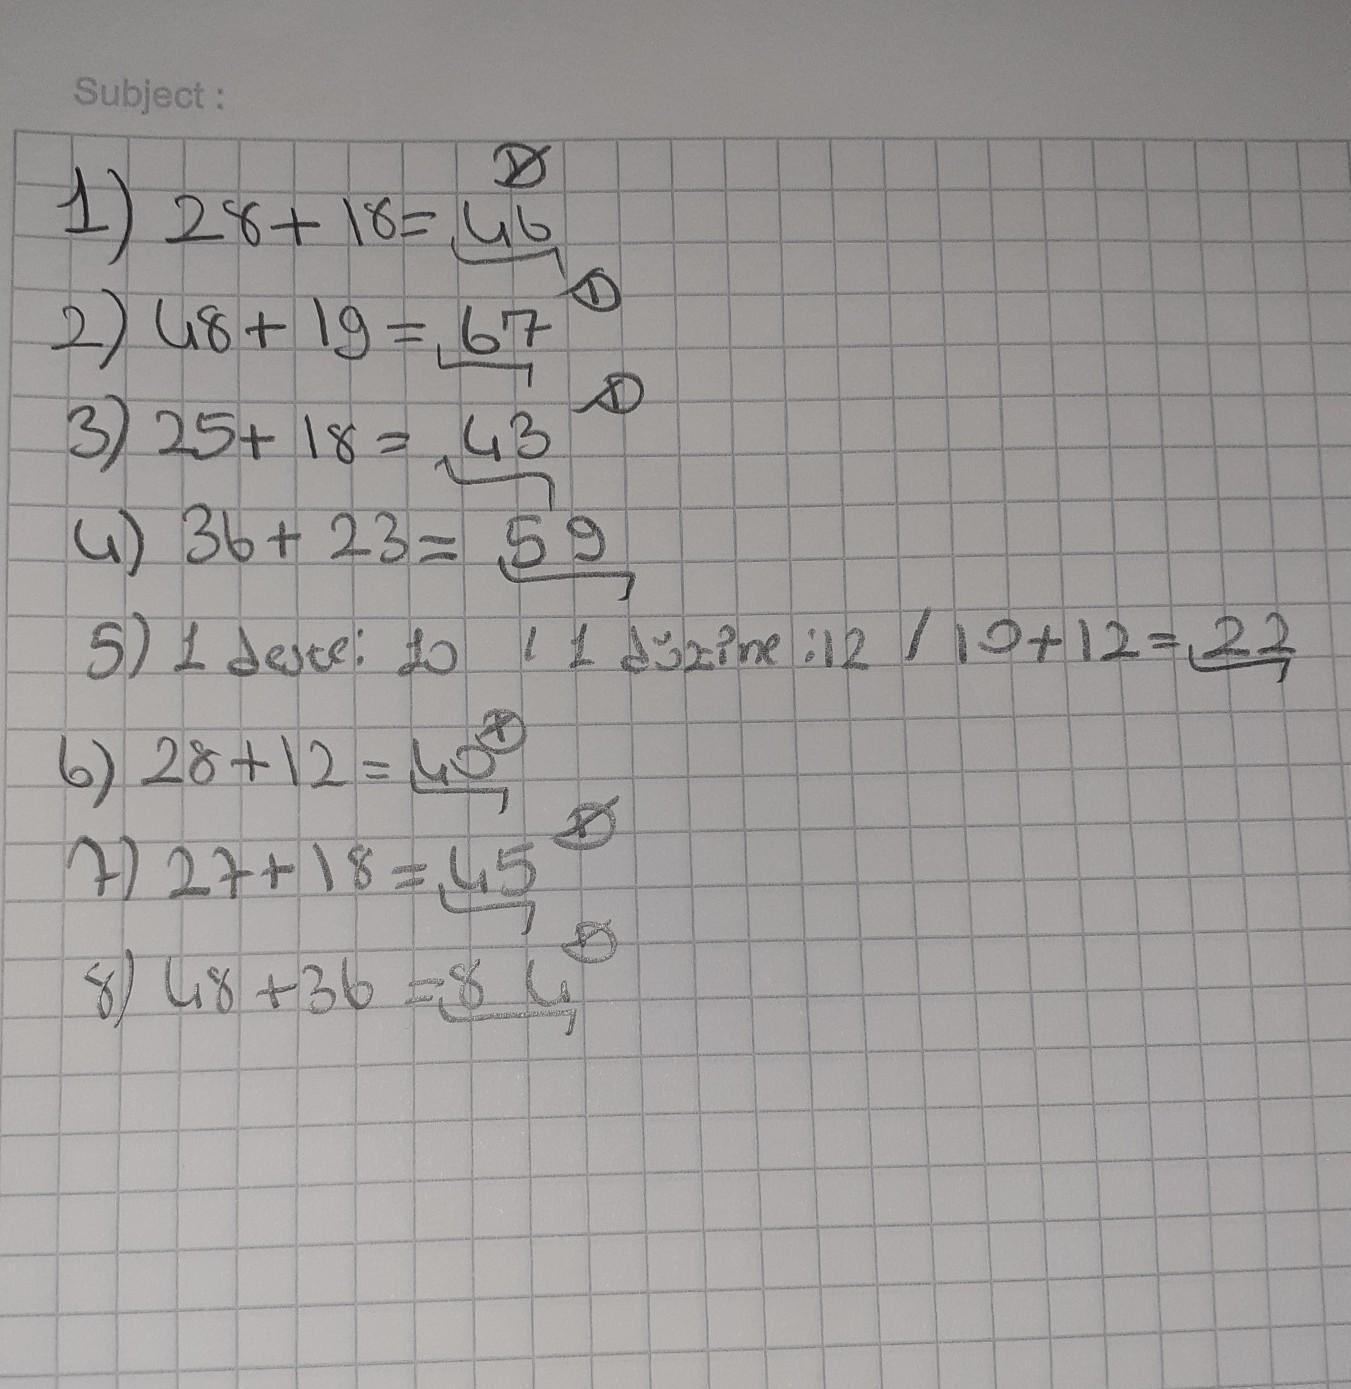 Subject :
1) 28 + 18 = 46
2) 48 + 19 = 67
3) 25 + 18 = 43
4) 36 + 23 = 59
5) 1 deste: 10 / 1 düzine : 12 / 10 + 12 = 22
6) 28 + 12 = 40
7) 27 + 18 = 45
8) 48 + 36 = 84